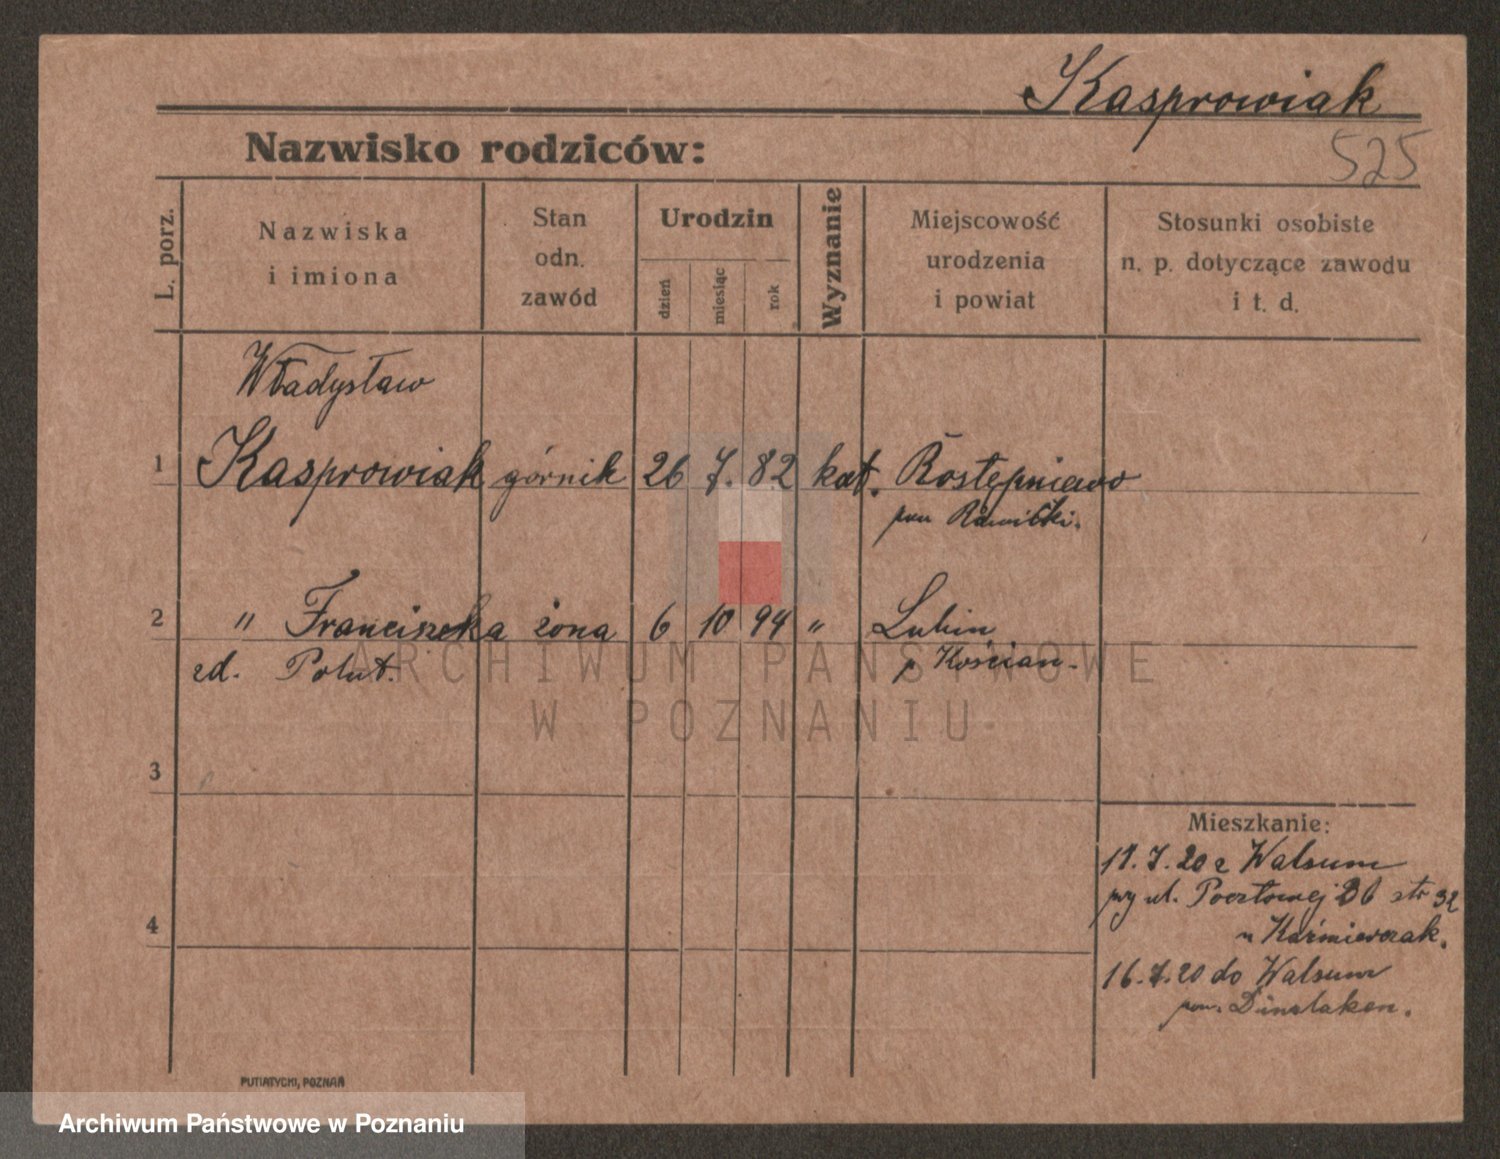 Kasprowiak
525
Nazwisko rodziców:
L. porz.
Nazwiska
i imiona
Stan
odn.
zawód
Urodzin
dzień
miesiąc
rok
Wyznanie
Miejscowość
urodzenia
i powiat
Stosunki osobiste
n. p. dotyczące zawodu
i t. d.
Władysław
1 Kasprowiak górnik 26 7. 82 kat. Rostępniewo
pow Rawicki.
2 " Franciszka żona 6 10 94 " Lubin
zd. Polut. p Kościan.
3
4
Mieszkanie:
11.7.20 z Walsum
przy ul. Pocztowej 26 str 32
u Kaźmierczak.
16.7.20 do Walsum
pow. Dinslaken.
PUTIATYCKI, POZNAŃ
ARCHIWUM PAŃSTWOWE
W POZNANIU
Archiwum Państwowe w Poznaniu